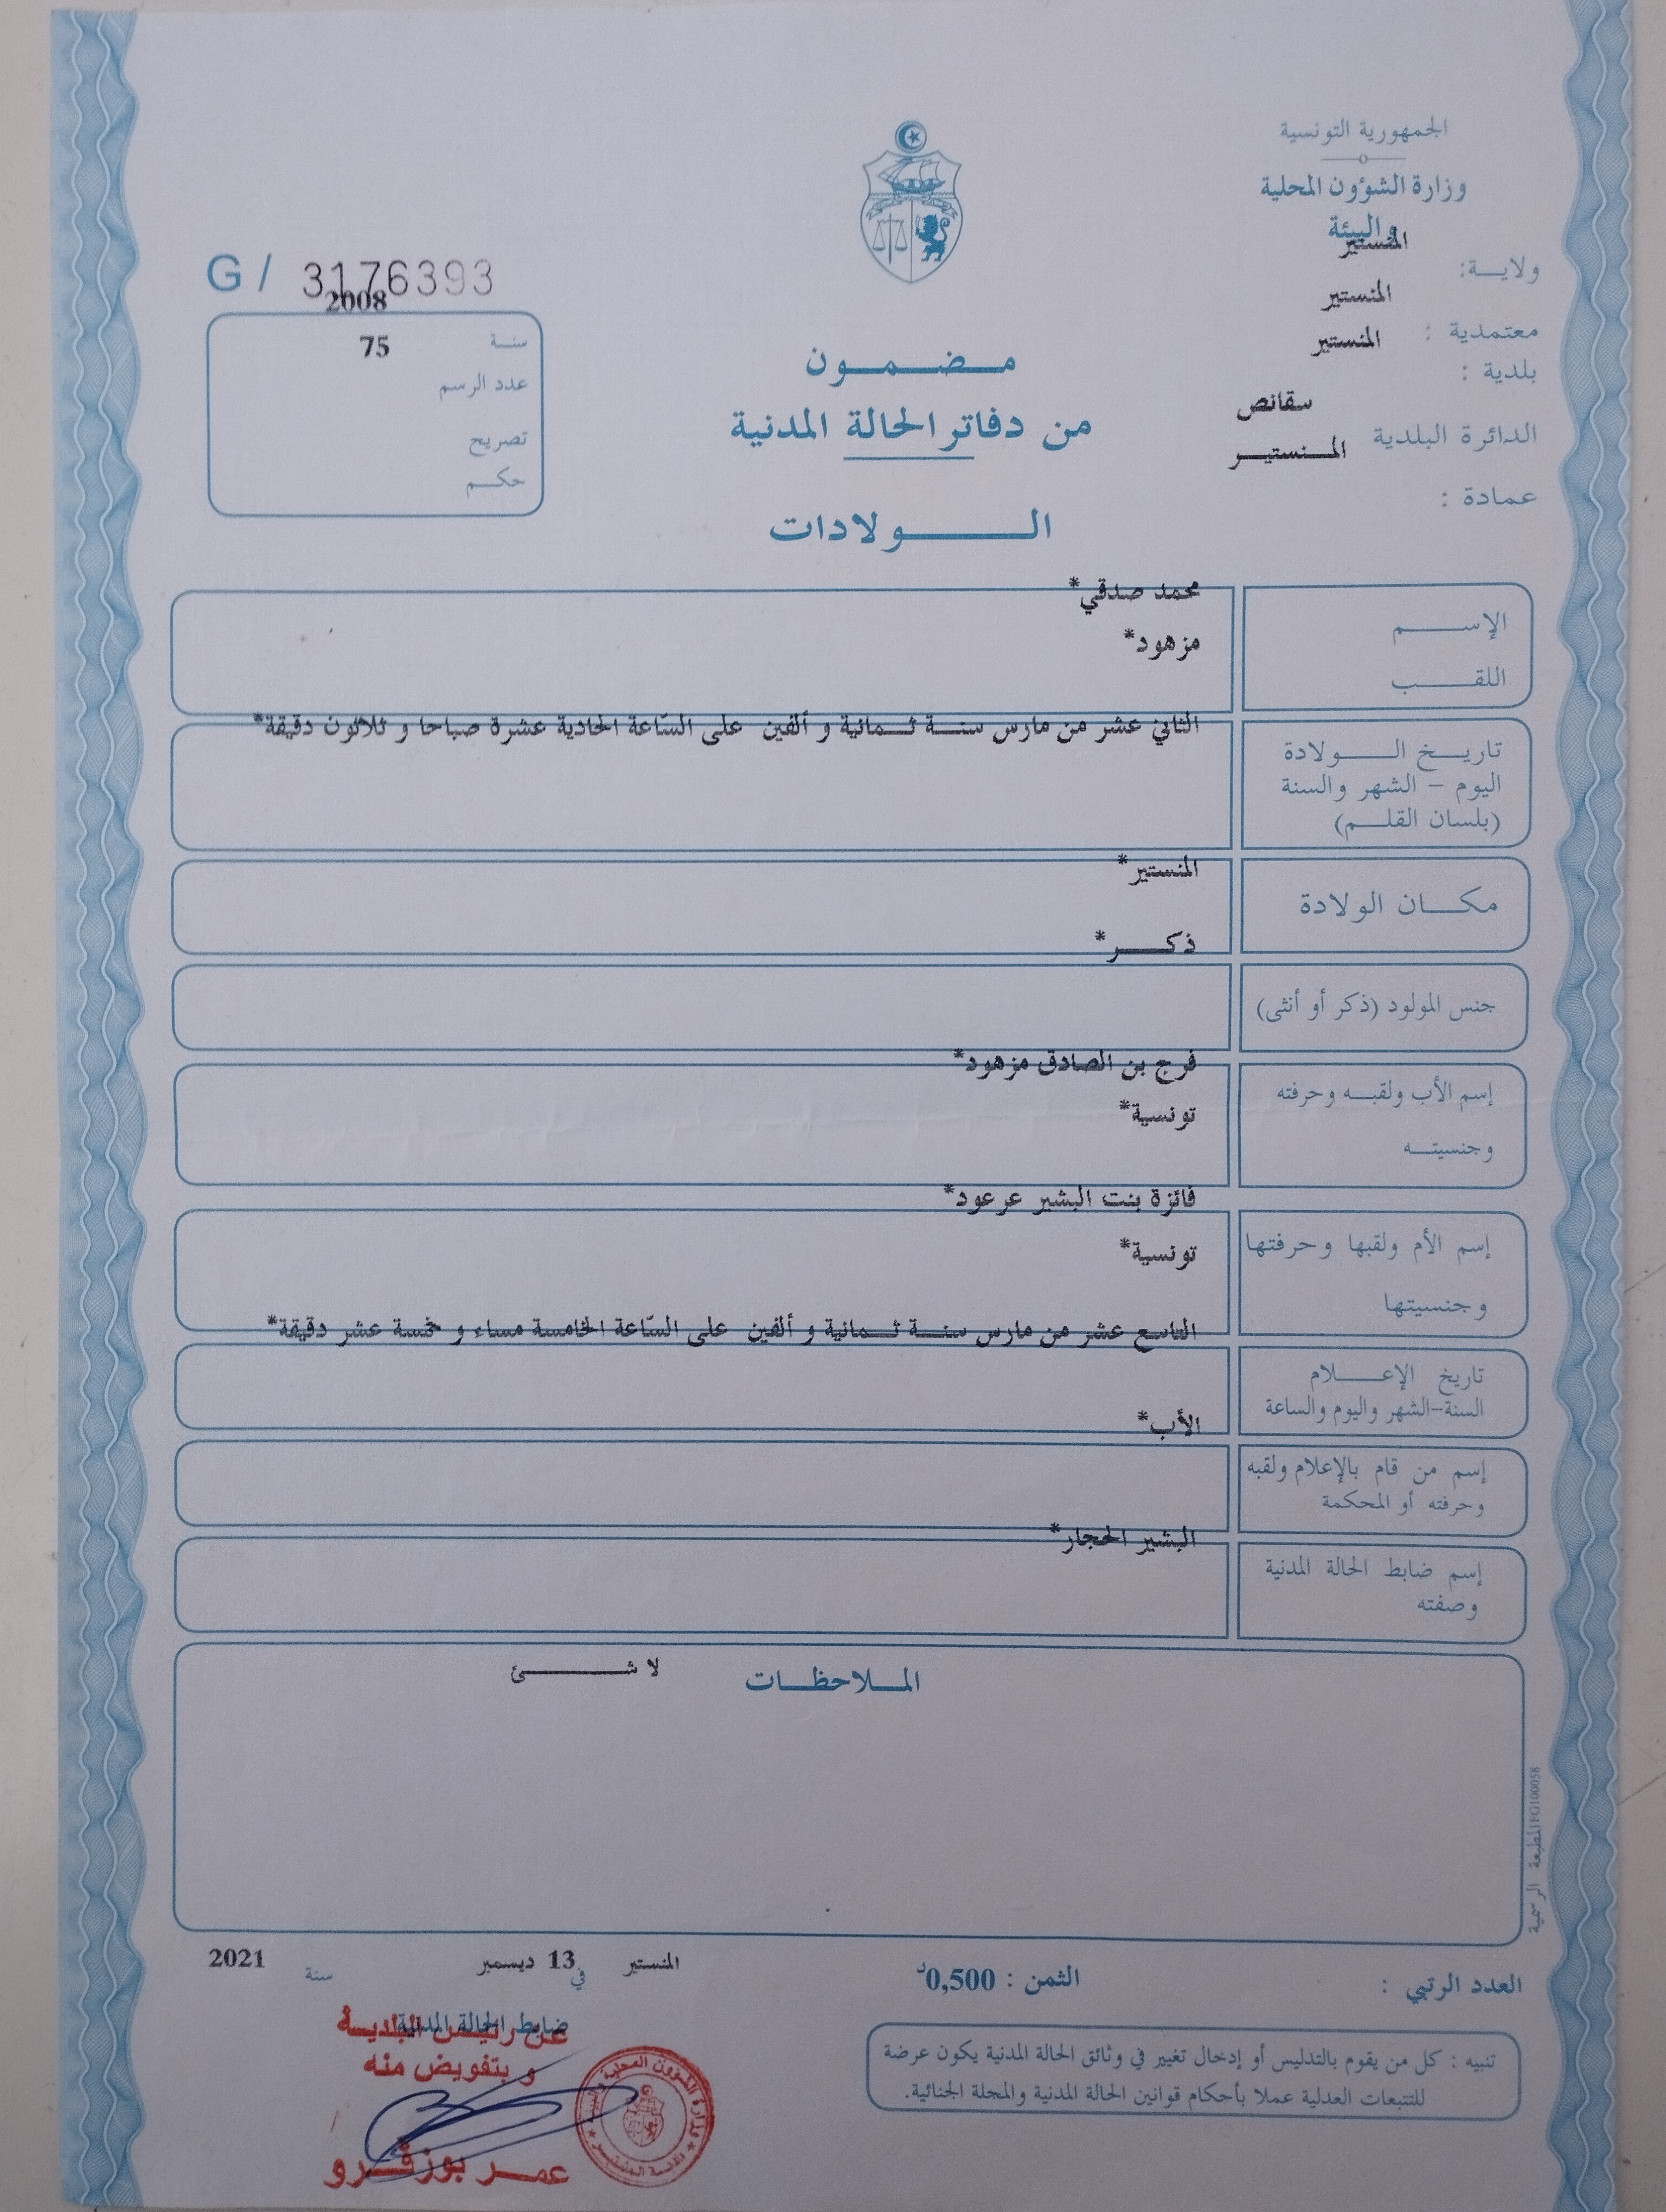 الجمهورية التونسية
وزارة الشؤون المحلية
والبيئة
ولايـــة: المنستير
معتمدية : المنستير
بلدية : المنستير
الدائرة البلدية سقانص
عمادة : المــنستيــر
G / 3176393
سنــة 2008
عدد الرسم 75
تصريح
حكــم
مــضــمــون
من دفاتر الحالة المدنية
الـــولادات
الإســــم محمد صدقي*
اللقــــب مزهود*
تاريــخ الــــولادة الثاني عشر من مارس سنــة ثــمانية و ألفين على السّاعة الحادية عشرة صباحا و ثلاثون دقيقة*
اليوم – الشهر والسنة
(بلسان القلــم)
مكــان الولادة المنستير*
جنس المولود (ذكر أو أنثى) ذكــــر*
إسم الأب ولقبــه وحرفته فرج بن الصادق مزهود*
وجنسيتــه تونسية*
إسم الأم ولقبها وحرفتها فائزة بنت البشير عرعود*
وجنسيتها تونسية*
تاريخ الإعــــلام التاسع عشر من مارس سنــة ثــمانية و ألفين على السّاعة الخامسة مساء و خمسة عشر دقيقة*
السنة-الشهر واليوم والساعة
إسم من قام بالإعلام ولقبه الأب*
وحرفته أو المحكمة
إسم ضابط الحالة المدنية البشير الحجار*
وصفته
المــلاحظــات لا شــــــئ
المطبعة الرسمية FG100058
العدد الرتبي :
الثمن : 0,500د
المنستير في 13 ديسمبر سنة 2021
ضابط الحالة المدنية
عن رئيس البلديـة
و بتفويض منه
عمــر بوزڤــرو
تنبيه : كل من يقوم بالتدليس أو إدخال تغيير في وثائق الحالة المدنية يكون عرضة
للتتبعات العدلية عملا بأحكام قوانين الحالة المدنية والمجلة الجنائية.